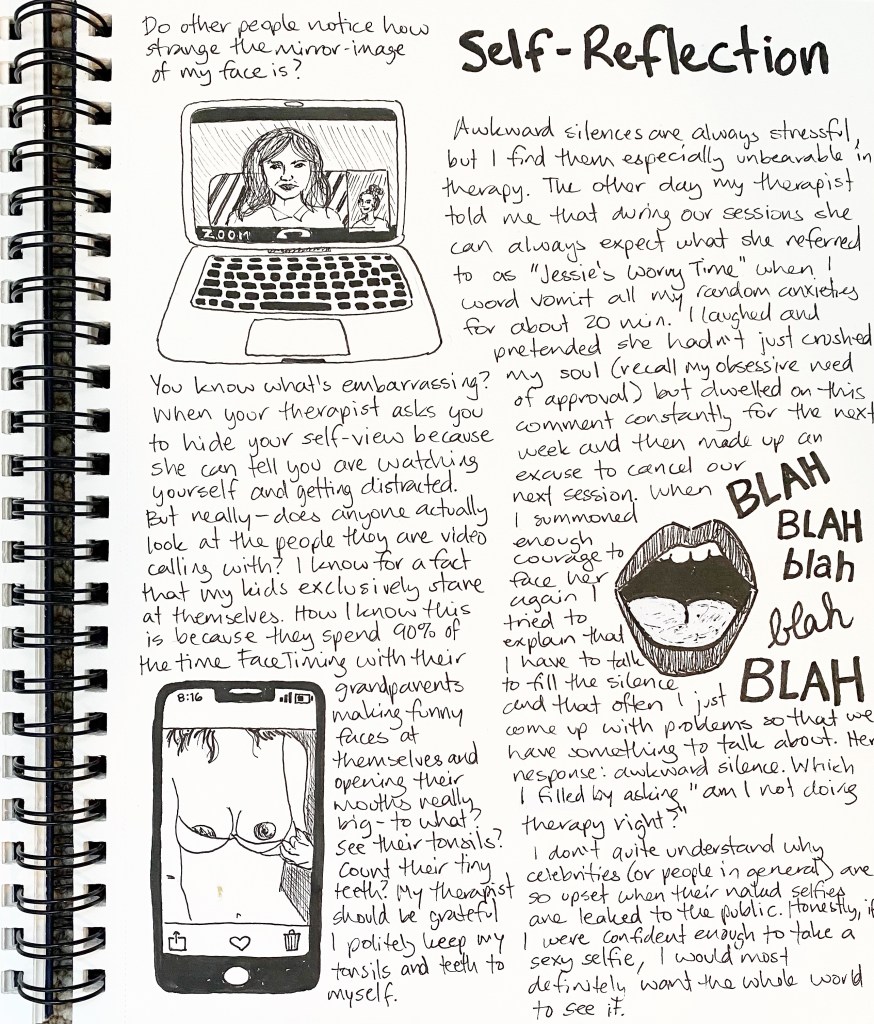 Do other people notice how
strange the mirror-image
of my face is?
ZOOM
You know what's embarrassing?
When your therapist asks you
to hide your self-view because
she can tell you are watching
yourself and getting distracted.
But really-does anyone actually
look at the people they are video
calling with? I know for a fact
that my kids exclusively stare
at themselves. How I know this
is because they spend 90% of
the time FaceTiming with their
grandparents
making funny
faces at
themselves and
opening their
mouths really
big-to what?
See their tonsils?
Count their tiny
teeth? My therapist
should be grateful
I politely keep my
tonsils and teeth to
myself.
8:16
Self-Reflection
Awkward silences are always stressful,
but I find them especially unbearable in
therapy. The other day my therapist
told me that during our sessions she
can always expect what she referred
to as "Jessie's Worry Time" when I
word vomit all my random anxieties
for about 20 min. I laughed and
pretended she hadn't just crushed
my soul (recall my obsessive need
of approval) but dwelled on this
comment constantly for the next
week and then made up an
excuse to cancel our
next session. When
I summoned
enough
courage to
face her
again I
tried to
explain that
I have to talk
to fill the silence
and that often I just
come up with problems so that we
have something to talk about. Her
response: awkward silence. Which
I filled by asking "am I not doing
therapy right?"
I don't quite understand why
celebrities (or people in general) are
so upset when their naked selfies
are leaked to the public. Honestly, if
I were confident enough to take a
sexy selfie, I would most
definitely want the whole world
to see it.
BLAH
BLAH
blah
blah
BLAH